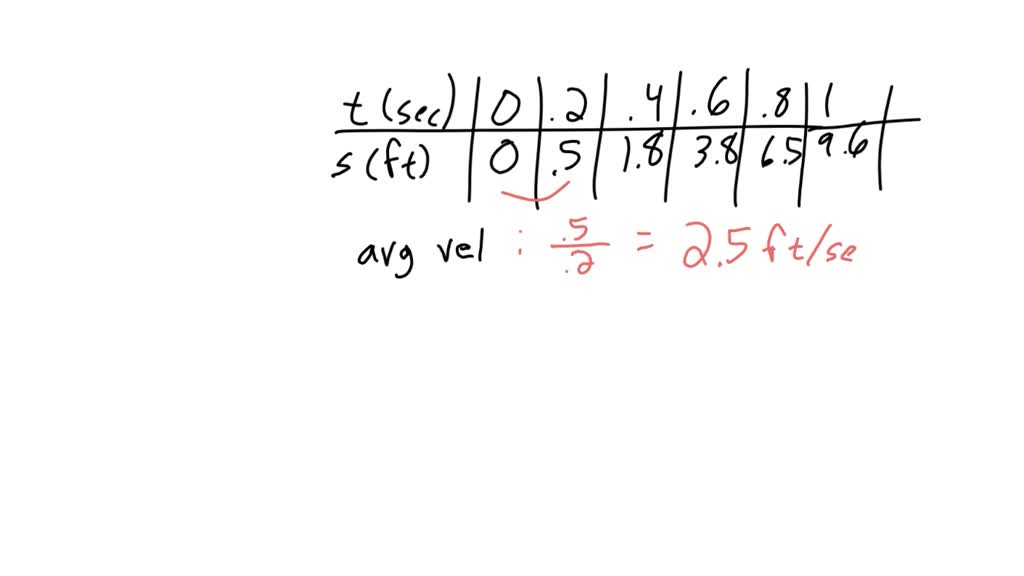 t (sec) 0 .2 .4 .6 .8 1
s (ft) 0 .5 1.8 3.8 6.5 9.6
avg vel : .5/.2 = 2.5 ft/se